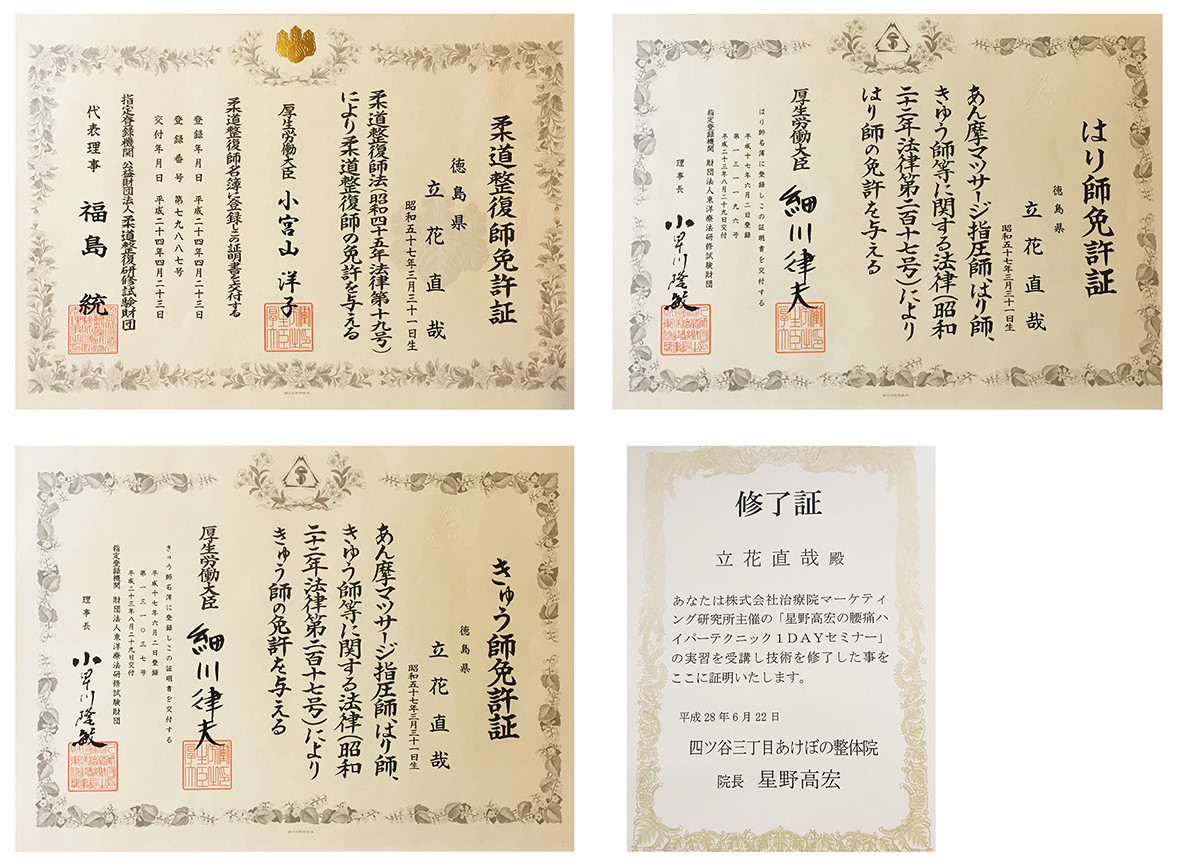 柔道整復師免許証
徳島県
立花直哉
昭和五十七年三月三十一日生
柔道整復師法(昭和四十五年法律第十九号)
により柔道整復師の免許を与える
厚生労働大臣 小宮山洋子
柔道整復師名簿に登録しこの証明書を交付する
登録年月日 平成二十四年四月二十三日
登録番号 第七九八八七号
交付年月日 平成二十四年四月二十三日
指定登録機関 公益財団法人柔道整復研修試験財団
代表理事 福島統
はり師免許証
徳島県
立花直哉
昭和五十七年三月三十一日生
あん摩マツサージ指圧師、はり師、
きゆう師等に関する法律(昭和
二十二年法律第二百十七号)により
はり師の免許を与える
厚生労働大臣 細川律夫
はり師名簿に登録しこの証明書を交付する
平成十七年六月二日登録
第一三一一九六号
平成二十三年八月二十九日交付
指定登録機関 財団法人東洋療法研修試験財団
理事長 小早川隆敏
きゅう師免許証
徳島県
立花直哉
昭和五十七年三月三十一日生
あん摩マツサージ指圧師、はり師、
きゆう師等に関する法律(昭和
二十二年法律第二百十七号)により
きゅう師の免許を与える
厚生労働大臣 細川律夫
きゅう師名簿に登録しこの証明書を交付する
平成十七年六月二日登録
第一三一〇三七号
平成二十三年八月二十九日交付
指定登録機関 財団法人東洋療法研修試験財団
理事長 小早川隆敏
修了証
立花直哉 殿
あなたは株式会社治療院マーケティ
ング研究所主催の「星野高宏の腰痛ハ
イパーテクニック1DAYセミナー」
の実習を受講し技術を修了した事を
ここに証明いたします。
平成28年6月22日
四ツ谷三丁目あけぼの整体院
院長 星野高宏